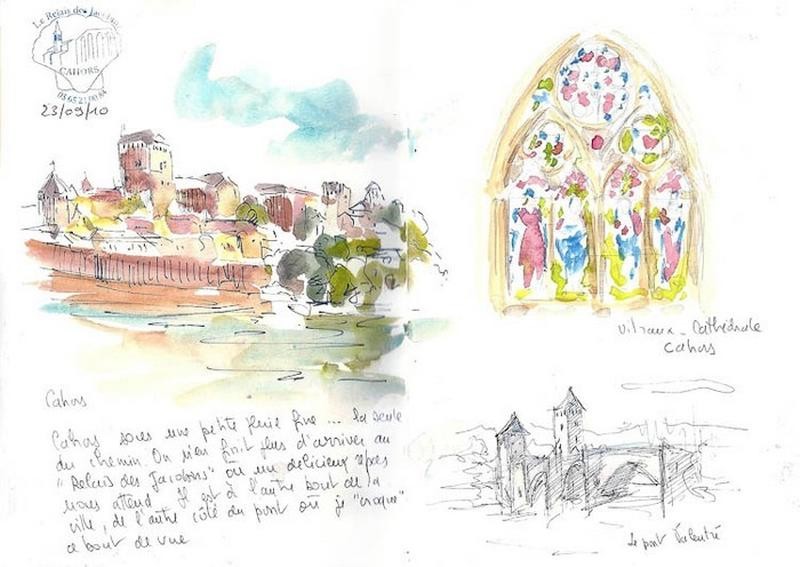 Le Relais des Jacobins
CAHORS
05 65 21 00 84
23/09/10
Cahors
Cahors sous une petite pluie fine ... la seule
du chemin. On n'en finit plus d'arriver au
"Relais des Jacobins" où un délicieux repas
nous attend. Il est à l'autre bout de la
ville, de l'autre côté du pont où je "croque"
ce bout de vue
Vitraux - Cathédrale
Cahors
Le pont Valentré